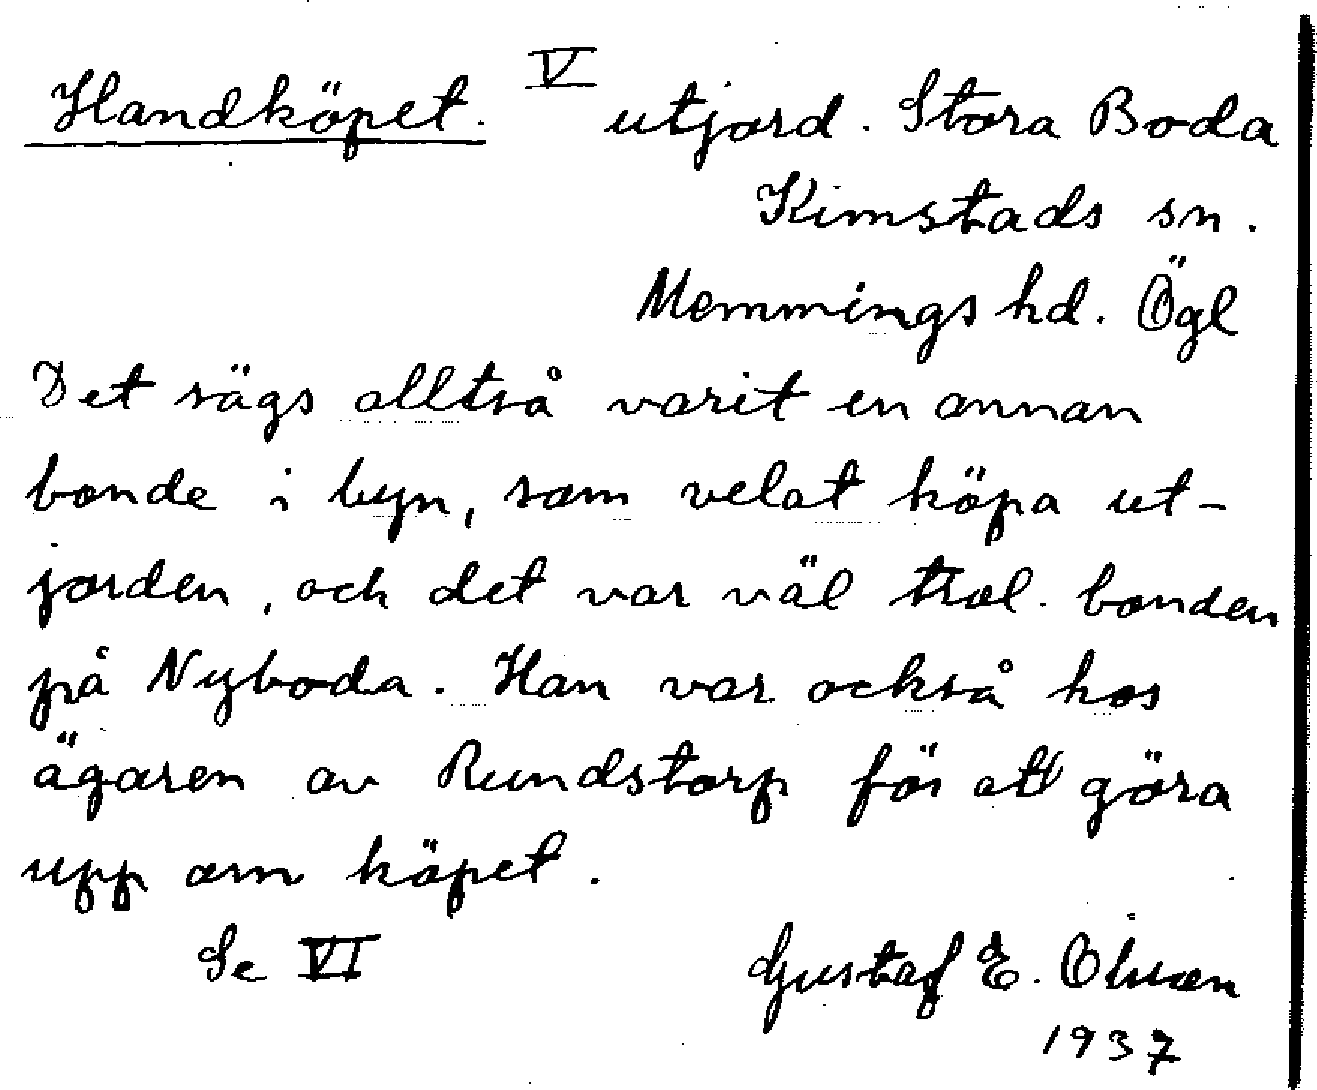 Handköpet. V utjord. Stora Boda
Kimstads sn.
Memmings hd. Ögl
Det sägs alltså varit en annan
bonde i byn, som velat köpa ut-
jorden, och det var väl trol. bonden
på Nyboda. Han var också hos
ägaren av Rundstorp för att göra
upp om köpet.
Se VI Gustaf E. Olsson
1937